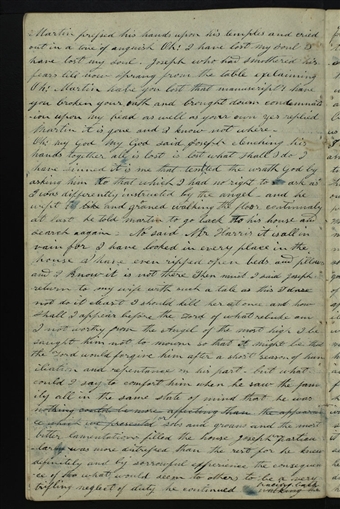 Martin pressed his hands upon his temples and cried
out in a tone of anguish Oh! I have lost my soul I
have lost my soul. Joseph who had smothered his
fears till now sprang from the table exclaiming
Oh! Martin have you lost that manuscript? have
you broken your oath and brought down condemnat
ion upon my head as well as your own Yes replied
Martin it is gone and I know not where.
Oh my God My God said Joseph clenching his
hands together all is lost is lost what shall I do I
have sinned it is me that tempted the wrath God by
asking him for that which I had no right to ask as
I was differently instructed by the angel and he
wept and groaned walking the floor continually
at last he told Martin to go back to his house and
search again No said Mr Harris it is all in
vain for I have looked in every place in the
house I have even ripped open beds and pillows
and I know it is not there Then must I said Joseph
return to my wife with such a tale as this I dare
not do it least I should kill her at once and how
shall I appear before the Lord of what rebuke am
I not worthy from the Angel of the most high I be
sought him not to mourn so that it might be that
the Lord would forgive him after a short season of hum
iliation and repentance on his part but what
could I say to comfort him when he saw the fam
ily all in the same state of mind that he was
sobs and groans and the most
bitter lamentations filled the house Joseph Particu
larly was more distressed than the rest for he knew
definitely and by sorrowful experience the consequen
ce of what would seem to others to be a very
trifling neglect of duty he continued
walking the